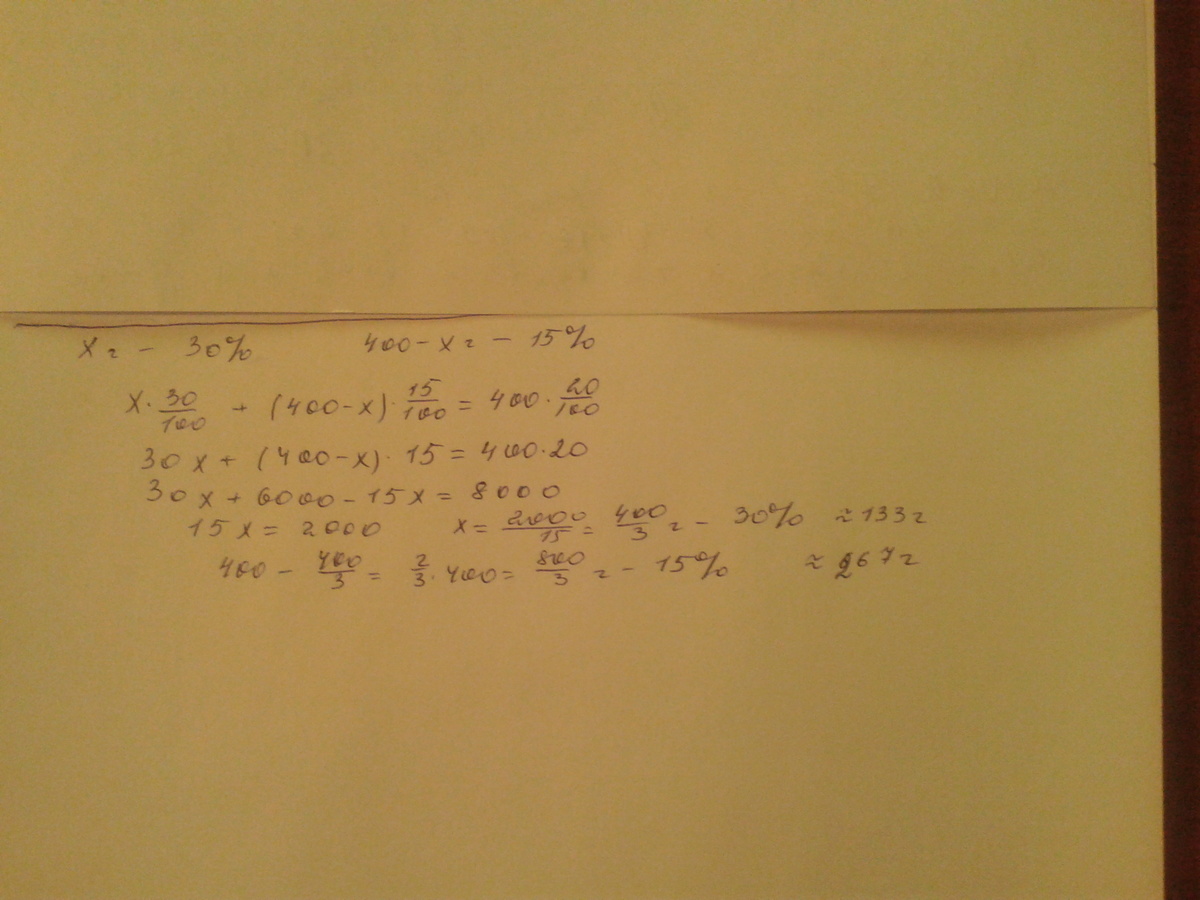 x г - 30% 400-x г - 15%
x · 30/100 + (400-x) · 15/100 = 400 · 20/100
30x + (400-x) · 15 = 400·20
30x + 6000 - 15x = 8000
15x = 2000 x = 2000/15 = 400/3 г - 30% ≈ 133 г
400 - 400/3 = 2/3 · 400 = 800/3 г - 15% ≈ 267 г